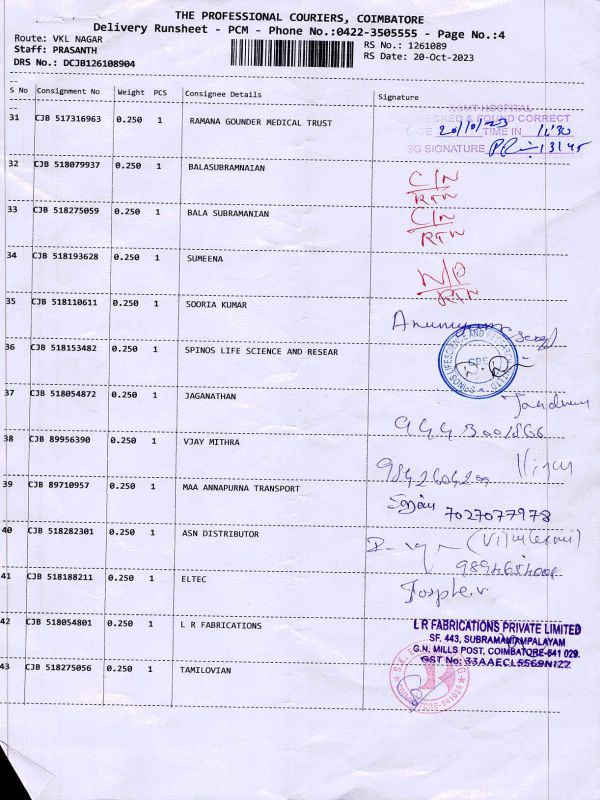 THE PROFESSIONAL COURIERS, COIMBATORE
Delivery Runsheet - PCM - Phone No.:0422-3505555 - Page No.:4
Route: VKL NAGAR
RS No.: 1261089
Staff: PRASANTH
RS Date: 20-Oct-2023
DRS No.: DCJB126108904
S No Consignment No Weight PCS Consignee Details Signature
31 CJB 517316963 0.250 1 RAMANA GOUNDER MEDICAL TRUST
HOSPITAL
CHECKED & FOUND CORRECT
DATE 20/10/23 TIME IN 11:30
SG SIGNATURE
32 CJB 518079937 0.250 1 BALASUBRAMNAIAN C/N
RTN
33 CJB 518275059 0.250 1 BALA SUBRAMANIAN C/N
RTN
34 CJB 518193628 0.250 1 SUMEENA N/P
RTN
35 CJB 518110611 0.250 1 SOORIA KUMAR
36 CJB 518153482 0.250 1 SPINOS LIFE SCIENCE AND RESEAR
37 CJB 518054872 0.250 1 JAGANATHAN
38 CJB 89956390 0.250 1 VJAY MITHRA
39 CJB 89710957 0.250 1 MAA ANNAPURNA TRANSPORT
7027077978
40 CJB 518282301 0.250 1 ASN DISTRIBUTOR
41 CJB 518188211 0.250 1 ELTEC
42 CJB 518054801 0.250 1 L R FABRICATIONS
L R FABRICATIONS PRIVATE LIMITED
SF. 443, SUBRAMANIAMPALAYAM
G.N. MILLS POST, COIMBATORE-641 029.
GST No: 33AAECL5569N1ZZ
43 CJB 518275056 0.250 1 TAMILOVIAN